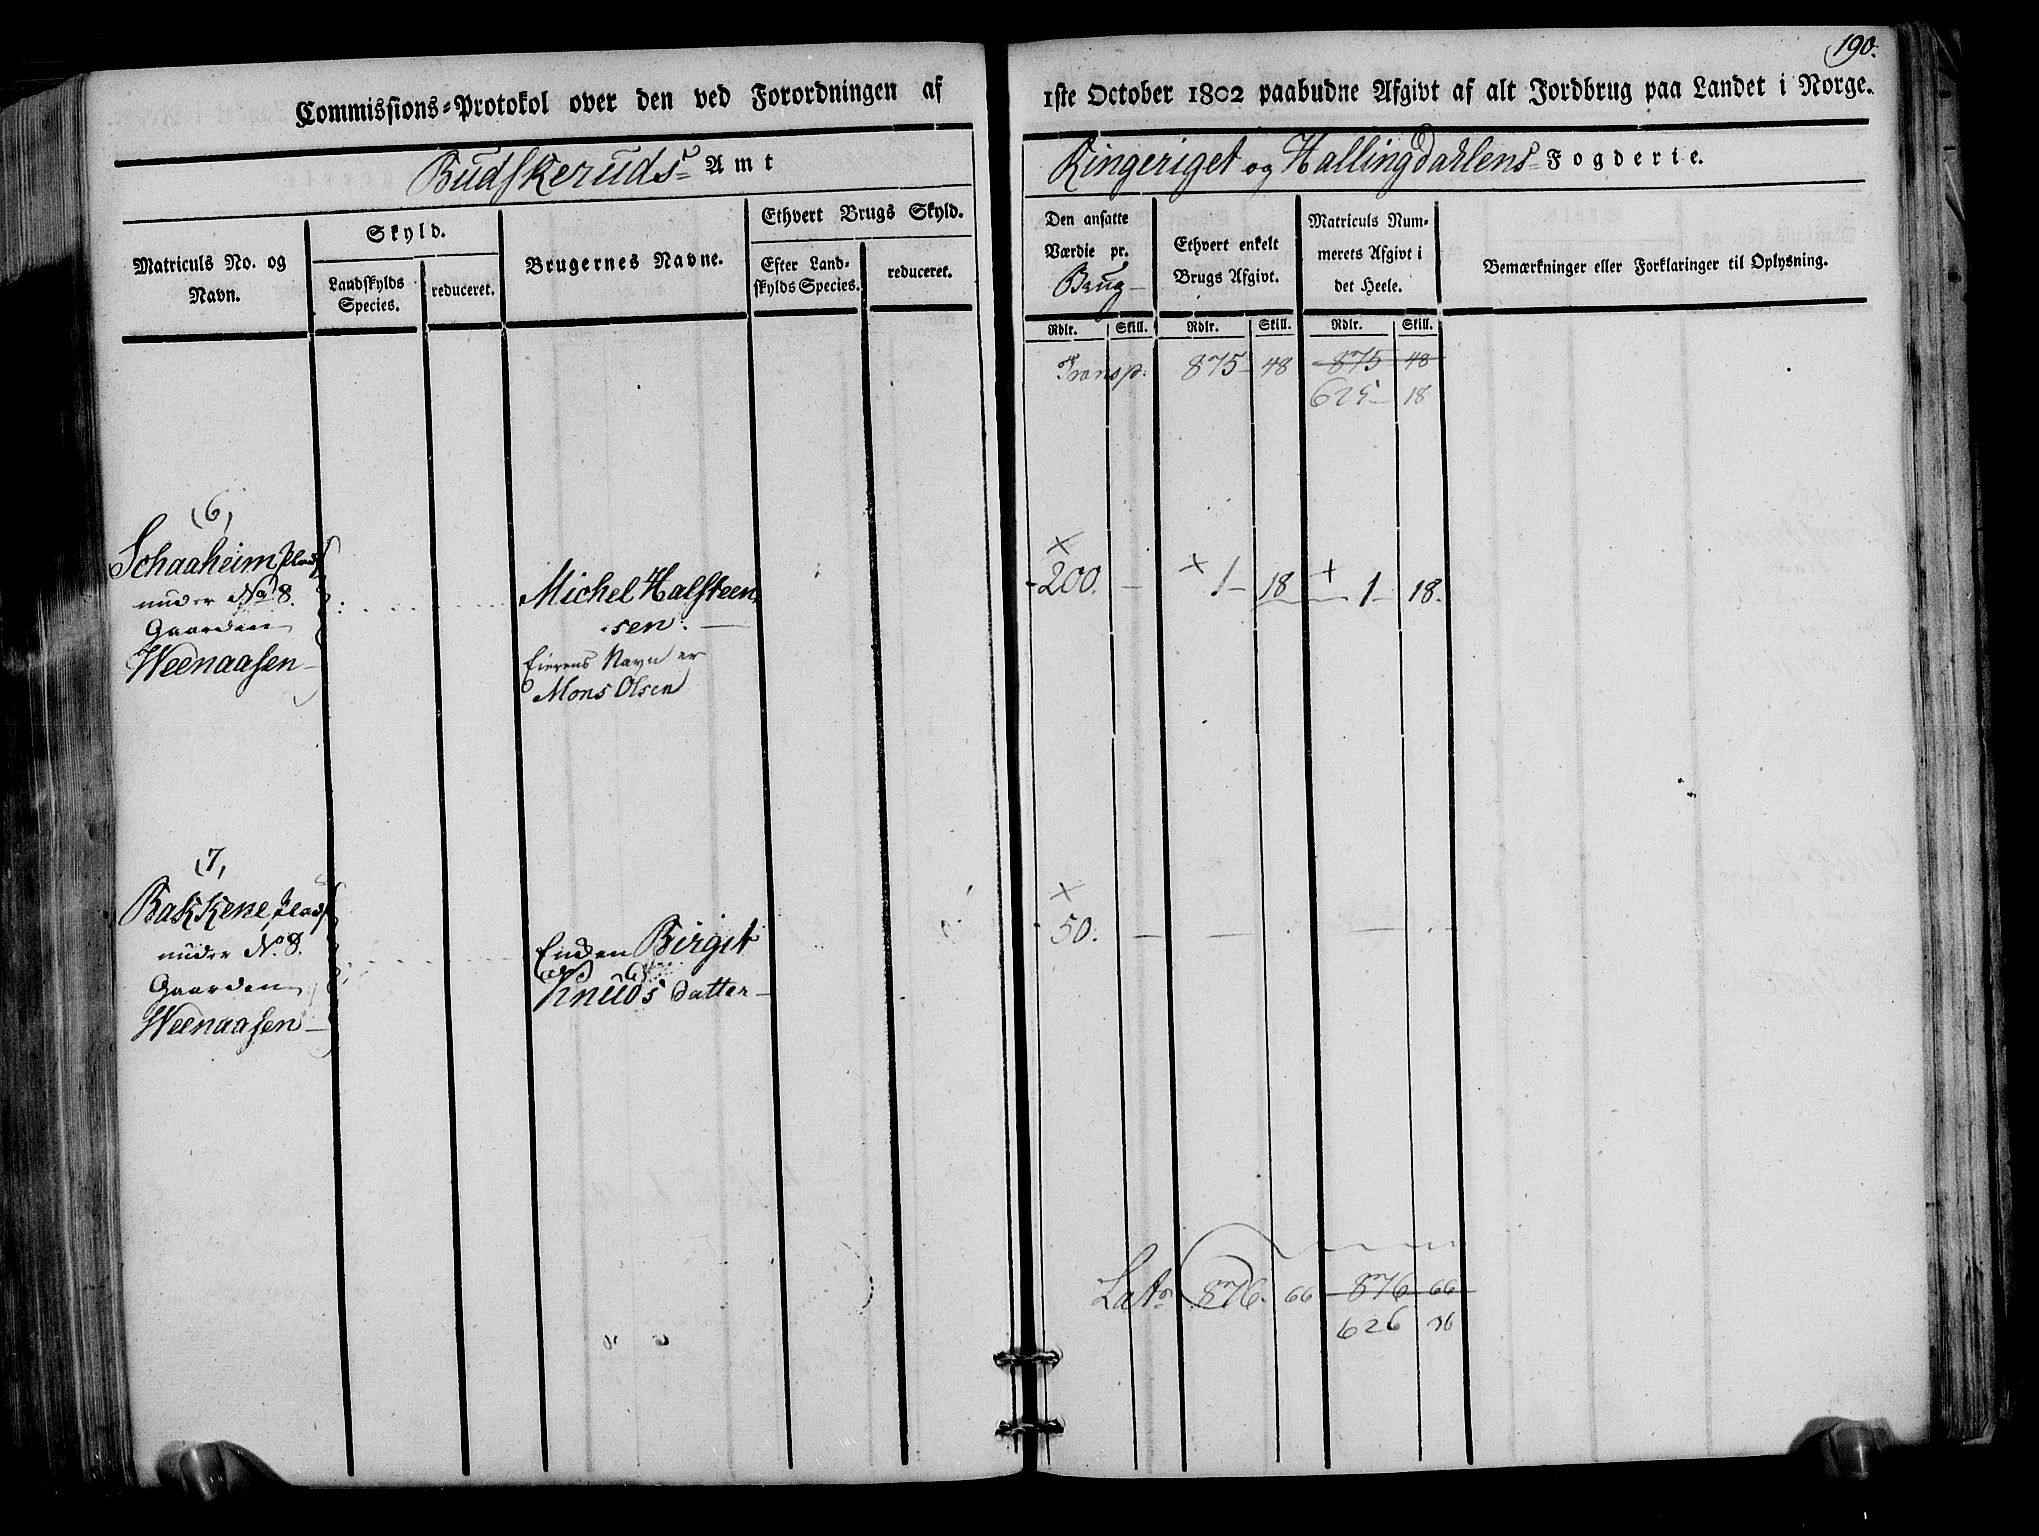 190.
Commissions-Protokol over den ved Forordningen af
1ste October 1802 paabudne Afgivt af alt Jordbrug paa Landet i Norge.
Budskeruds Amt
Ringeriget og Hallingdahlens Fogderie.
Matriculs No. og
Navn.
Skyld.
Landskylds
Species.
reduceret.
Brugernes Navne.
Ethvert Brugs Skyld.
Efter Land-
skylds Species.
reduceret.
Den ansatte
Værdie pr.
Brug
Ethvert enkelt
Brugs Afgivt.
Matriculs Num-
merets Afgivt i
det Heele.
Bemærkninger eller Forklaringer til Oplysning.
Rdlr. Skill. Rdlr. Skill. Rdlr. Skill.
Transp: 875 48 875 48
625 18
(6)
Schaaheim, Plads
under No 8.
Gaarden
Weenaasen
Michel Halsteen
sen.
Eierens Navn er
Mons Olsen
200. 1 18 1 18.
(7)
Bakkene, Plads
under No. 8.
Gaarden
Weenaasen
Enken Birget
Knuds datter
50.
Lat 876. 66 876 66
626 36